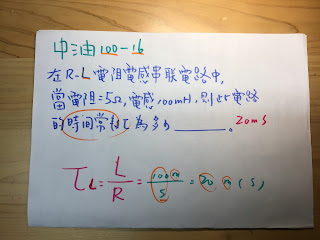 中油100-16
在R-L電阻電感串联電路中,
當電阻=5Ω,電感100mH,則此電路
的時間常數τ為多少______。20mS
τL = L/R = 100m/5 = 20 m(s)